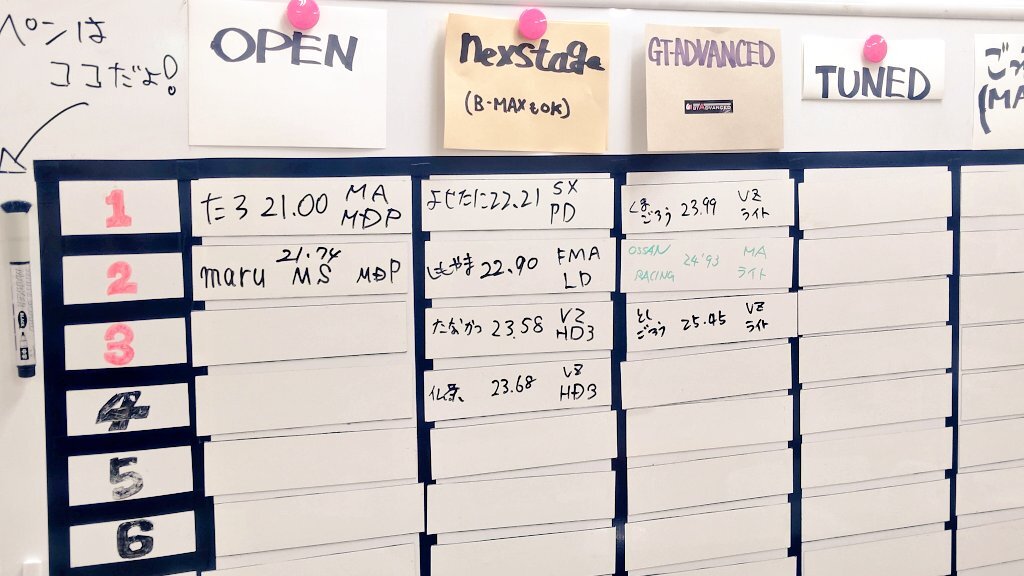 ペンは
ココだよ!
OPEN
nexstage
(B-MAXもOK)
GT-ADVANCED
TUNED
(MA
1
たろ 21.00 MA
MDP
よせたに 22.21 SX
PD
くま
ごろう 23.99 VZ
ライト
2
21.74
maru MS MDP
しもやま 22.90 FMA
LD
OSSAN
RACING 24'93 MA
ライト
3
たなかつ 23.58 VZ
HD3
とし
ごろう 25.45 VZ
ライト
4
23.68 VZ
HD3
5
6